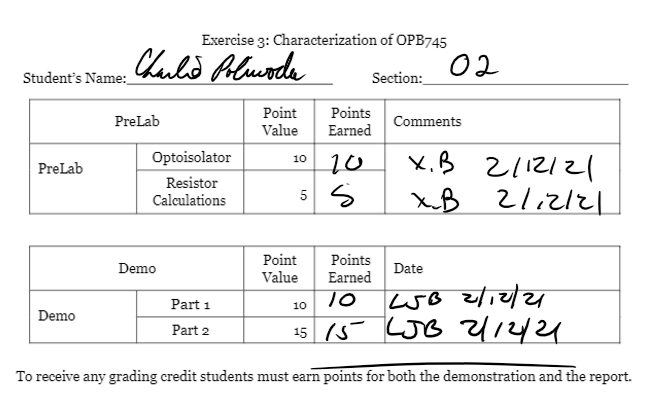 Exercise 3: Characterization of OPB745
Student's Name: Section: 02
PreLab Point Value Points Earned Comments
PreLab Optoisolator 10 10 X.B 2/12/21
Resistor Calculations 5 5 X.B 2/12/21
Demo Point Value Points Earned Date
Demo Part 1 10 10 LJB 2/12/21
Part 2 15 15 LJB 2/12/21
To receive any grading credit students must earn points for both the demonstration and the report.